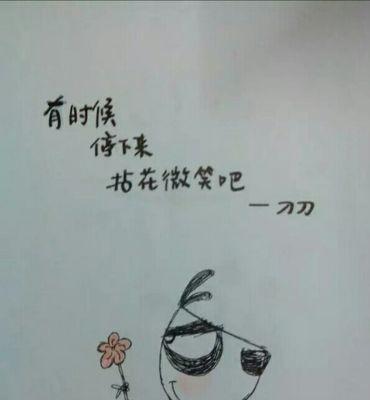 有时候
停下来
拈花微笑吧
一刀刀